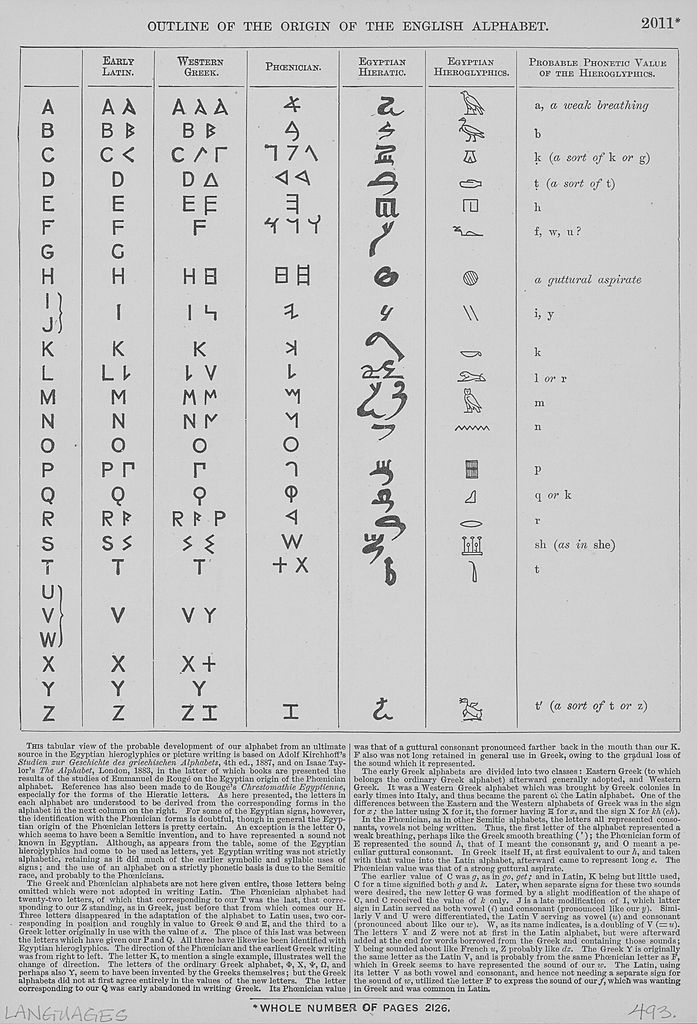 OUTLINE OF THE ORIGIN OF THE ENGLISH ALPHABET.
2011*
EARLY LATIN.
WESTERN GREEK.
PHŒNICIAN.
EGYPTIAN HIERATIC.
EGYPTIAN HIEROGLYPHICS.
PROBABLE PHONETIC VALUE OF THE HIEROGLYPHICS.
A A A a, a weak breathing
B B B b
C C < C Γ k (a sort of k or g)
D D D Δ t (a sort of t)
E E E h
F F F f, w, u?
G G
H H H a guttural aspirate
I
J I I i, y
K K K k
L L V l or r
M M M m
N N N n
O O O O
P P Γ Γ p
Q Q q or k
R R R P r
S S S W sh (as in she)
T T T + X t
U
V V V Y
W
X X X +
Y Y Y
Z Z Z I I t' (a sort of t or z)
THIS tabular view of the probable development of our alphabet from an ultimate
source in the Egyptian hieroglyphics or picture writing is based on Adolf Kirchhoff's
Studien zur Geschichte des griechischen Alphabets, 4th ed., 1887, and on Isaac Tay-
lor's The Alphabet, London, 1883, in the latter of which books are presented the
results of the studies of Emmanuel de Rougé on the Egyptian origin of the Phœnician
alphabet. Reference has also been made to de Rougé's Chrestomathie Egyptienne,
especially for the forms of the Hieratic letters. As here presented, the letters in
each alphabet are understood to be derived from the corresponding forms in the
alphabet in the next column on the right. For some of the Egyptian signs, however,
the identification with the Phœnician forms is doubtful, though in general the Egyp-
tian origin of the Phœnician letters is pretty certain. An exception is the letter O,
which seems to have been a Semitic invention, and to have represented a sound not
known in Egyptian. Although, as appears from the table, some of the Egyptian
hieroglyphics had come to be used as letters, yet Egyptian writing was not strictly
alphabetic, retaining as it did much of the earlier symbolic and syllabic uses of
signs; and the use of an alphabet on a strictly phonetic basis is due to the Semitic
race, and probably to the Phœnicians.
The Greek and Phœnician alphabets are not here given entire, those letters being
omitted which were not adopted in writing Latin. The Phœnician alphabet had
twenty-two letters, of which that corresponding to our T was the last, that corre-
sponding to our Z standing, as in Greek, just before that from which comes our H.
Three letters disappeared in the adaptation of the alphabet to Latin uses, two cor-
responding in position and roughly in value to Greek Θ and Ξ, and the third to a
Greek letter originally in use with the value of s. The place of this last was between
the letters which have given our P and Q. All three have likewise been identified with
Egyptian forms. The writing of the Phœnician and the earliest Greek writing
was from right to left. The letter K, to mention a single example, illustrates well the
change of direction. The letters of the ordinary Greek alphabet, Φ, X, Ψ, Ω, and
perhaps also Y, seem to have been invented by the Greeks themselves; but the Greek
alphabets did not at first agree entirely in the values of the new letters. The letter
corresponding to our Q was early abandoned in writing Greek. Its Phœnician value
was that of a guttural consonant pronounced farther back in the mouth than our K.
F also was not long retained in general use in Greek, owing to the gradual loss of
the sound which it represented.
The early Greek alphabets are divided into two classes: Eastern Greek (to which
belongs the ordinary Greek alphabet) afterward generally adopted, and Western
Greek. It was a Western Greek alphabet which was brought by Greek colonies in
early times into Italy, and thus became the parent of the Latin alphabet. One of the
differences between the Eastern and the Western alphabets of Greek was in the sign
for x; the latter using X for it, the former having Ξ for x, and the sign X for kh (ch).
In the Phœnician, as in other Semitic alphabets, the letters all represented conso-
nants, vowels not being written. Thus, the first letter of the alphabet represented a
weak breathing, perhaps like the Greek smooth breathing ('); the Phœnician form of
E represented the sound h, that of I meant the consonant y, and O meant a pe-
culiar guttural consonant. In Greek itself H, at first equivalent to our h, and taken
with that value into the Latin alphabet, afterward came to represent long e. The
Phœnician value was that of a strong guttural aspirate.
The earlier value of C was g, as in go, get; and in Latin, K being but little used,
C for a time signified both g and k. Later, when separate signs for these two sounds
were desired, the new letter G was formed by a slight modification of the shape of
C, and C received the value of k only. J is a late modification of I, which latter
sign in Latin served as both vowel (i) and consonant (pronounced like our y). Simi-
larly V and U were differentiated, the Latin V serving as vowel (u) and consonant
(pronounced about like our w). W, as its name indicates, is a doubling of V (= u).
The letters Y and Z were not at first in the Latin alphabet, but were afterward
added at the end for words borrowed from the Greek and containing those sounds;
Y being sounded about like French u, Z probably like dz. The Greek Y is originally
the same letter as the Latin V, and is probably from the same Phœnician letter as F,
which in Greek seems to have represented the sound of our w. The Latin, using
its letter V as both vowel and consonant, and hence not needing a separate sign for
the sound of w, utilized the letter F to express the sound of our f, which was wanting
in Greek and was common in Latin.
*WHOLE NUMBER OF PAGES 2126.
LANGUAGES
493.